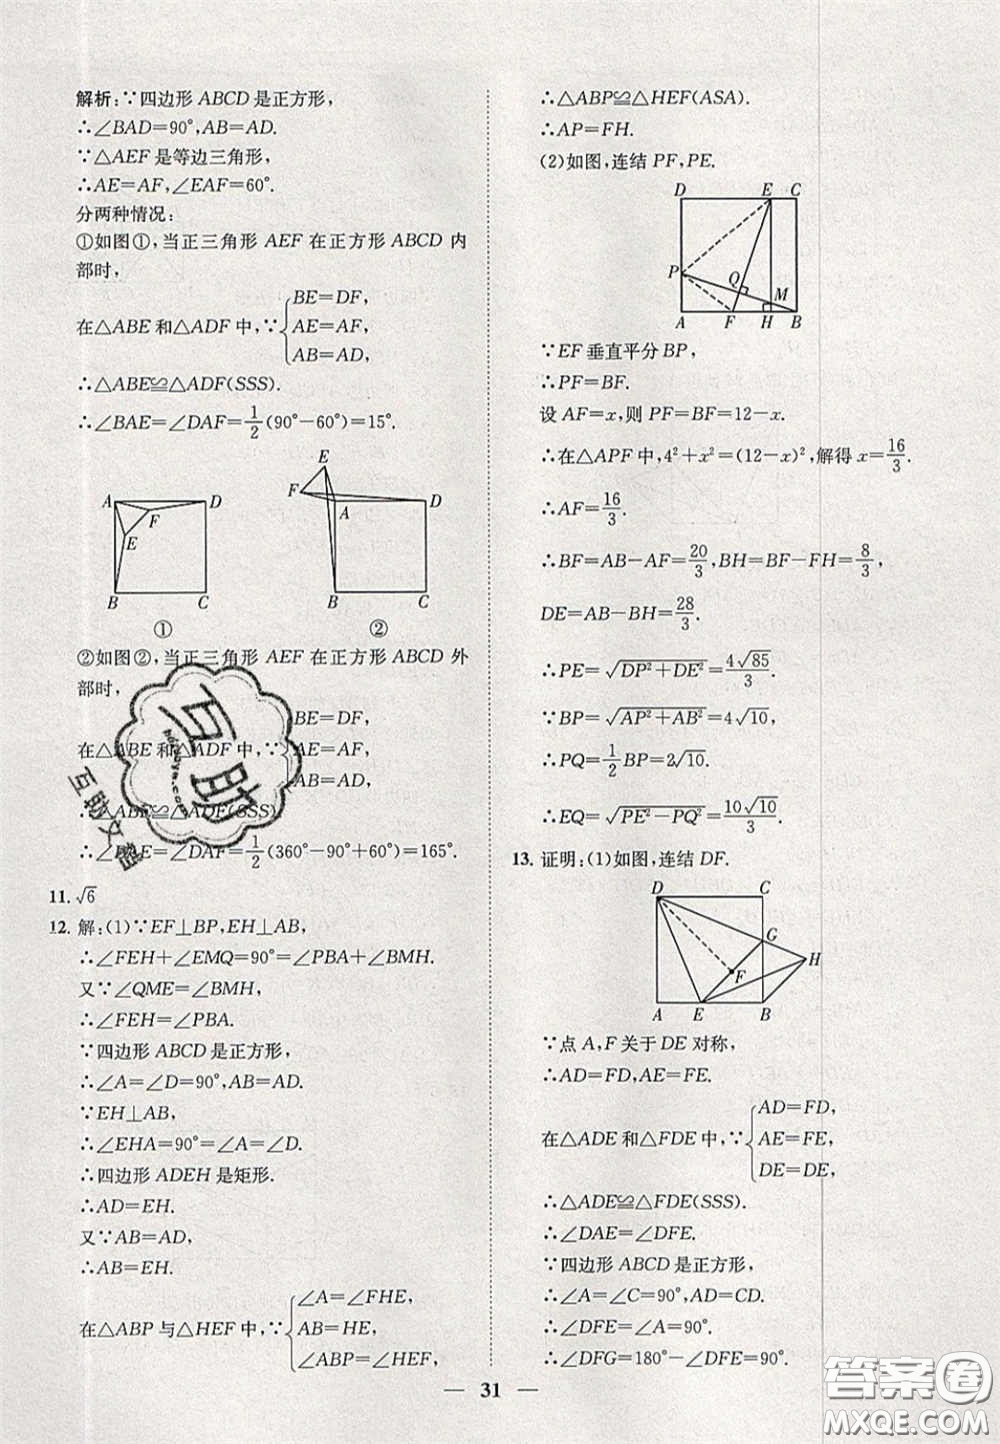 解析:∵四边形 ABCD 是正方形,
∴∠BAD=90°,AB=AD.
∵△AEF 是等边三角形,
∴AE=AF,∠EAF=60°.
分两种情况:
①如图①,当正三角形 AEF 在正方形 ABCD 内
部时,
BE=DF,
在△ABE 和△ADF 中,∵ AE=AF,
AB=AD,
∴△ABE≌△ADF(SSS).
∴∠BAE=∠DAF=1/2(90°-60°)=15°.
A D F E B C
①
E F A D B C
②
②如图②,当正三角形 AEF 在正方形 ABCD 外
部时,
BE=DF,
在△ABE 和△ADF 中,∵ AE=AF,
AB=AD,
∴△ABE≌△ADF(SSS).
∴∠BAE=∠DAF=1/2(360°-90°+60°)=165°.
11. √6
12. 解:(1)∵EF⊥BP,EH⊥AB,
∴∠FEH+∠EMQ=90°=∠PBA+∠BMH.
又∵∠QME=∠BMH,
∴∠FEH=∠PBA.
∵四边形 ABCD 是正方形,
∴∠A=∠D=90°,AB=AD.
∵EH⊥AB,
∴∠EHA=90°=∠A=∠D.
∴四边形 ADEH 是矩形.
∴AD=EH.
又∵AB=AD,
∴AB=EH.
∠A=∠FHE,
在△ABP 与△HEF 中,∵ AB=HE,
∠ABP=∠HEF,
∴△ABP≌△HEF(ASA).
∴AP=FH.
(2)如图,连结 PF,PE.
D E C
P Q M
A F H B
∵EF 垂直平分 BP,
∴PF=BF.
设 AF=x,则 PF=BF=12-x.
∴在△APF 中,4²+x²=(12-x)²,解得 x=16/3.
∴AF=16/3.
∴BF=AB-AF=20/3,BH=BF-FH=8/3,
DE=AB-BH=28/3.
∴PE=√(DP²+DE²)=4√85/3.
∵BP=√(AP²+AB²)=4√10,
∴PQ=1/2BP=2√10.
∴EQ=√(PE²-PQ²)=10√10/3.
13. 证明:(1)如图,连结 DF.
D C
G
H
F
A E B
∵点 A,F 关于 DE 对称,
∴AD=FD,AE=FE.
AD=FD,
在△ADE 和△FDE 中,∵ AE=FE,
DE=DE,
∴△ADE≌△FDE(SSS).
∴∠DAE=∠DFE.
∵四边形 ABCD 是正方形,
∴∠A=∠C=90°,AD=CD.
∴∠DFE=∠A=90°.
∴∠DFG=180°-∠DFE=90°.
— 31 —
互助
互助文
答案圈
MXQE.COM